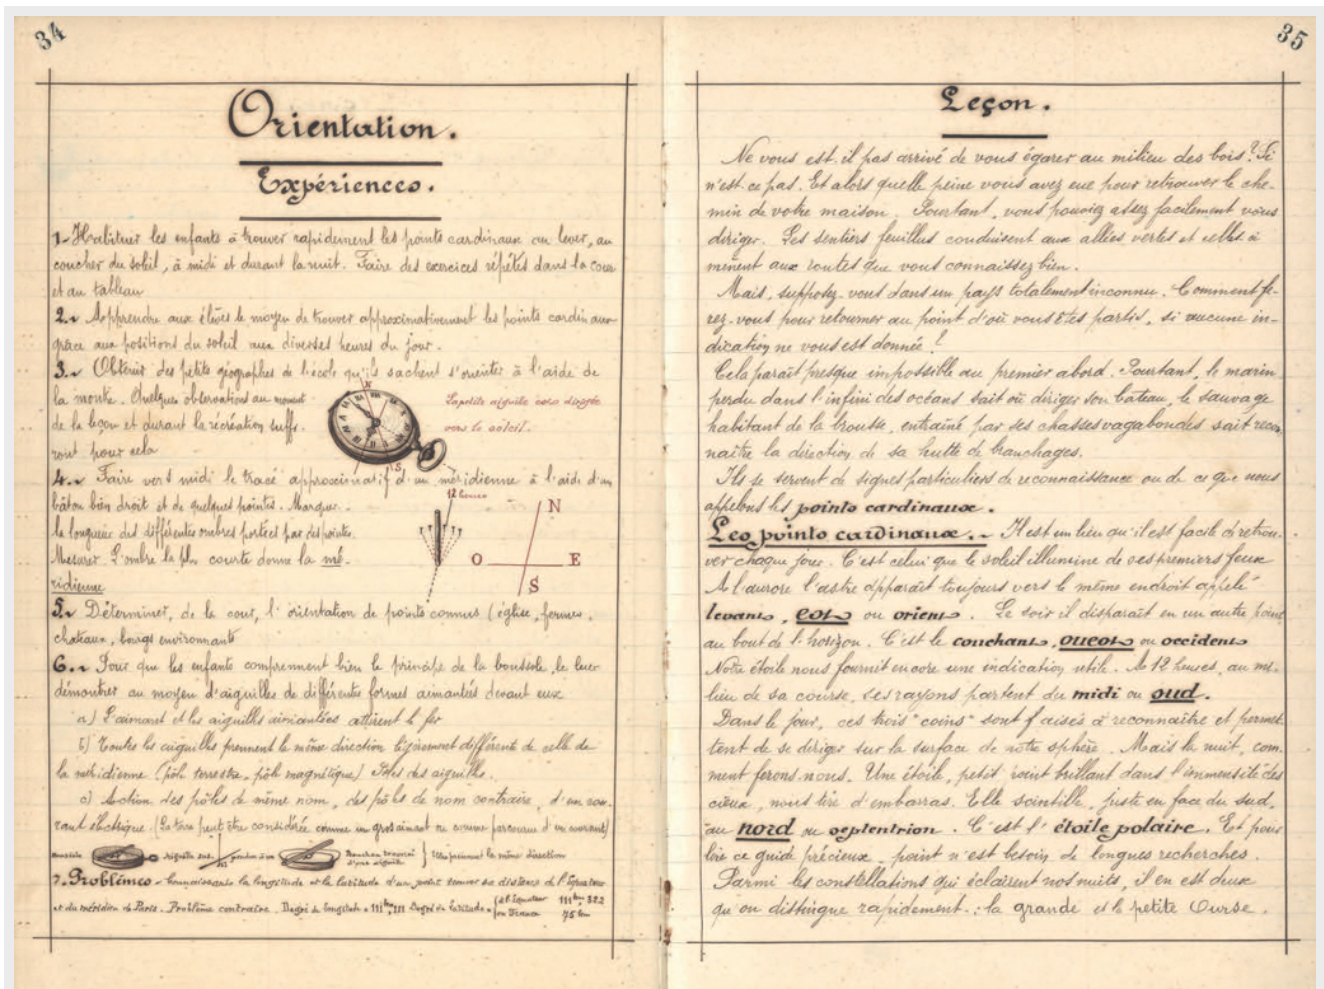 34
Orientation.
Expériences.
1- Habituer les enfants à trouver rapidement les points cardinaux au lever, au
coucher du soleil, à midi et durant la nuit. Faire des exercices répétés dans la cour
et au tableau
2.- Apprendre aux élèves le moyen de trouver approximativement les points cardinaux
grâce aux positions du soleil aux diverses heures du jour.
3.- Obtenir des petits géographes de l'école qu'ils sachent s'orienter à l'aide de
la montre. Quelques observations au moment
de la leçon et durant la récréation suffi-
ront pour cela
N
S
La petite aiguille sera dirigée
vers le soleil.
4.- Faire vers midi le tracé approximatif d'un méridienne à l'aide d'un
bâton bien droit et de quelques pointes. Marquer
la longueur des différentes ombres portées par des pointes.
Mesurer. L'ombre la plus courte donne la mé-
ridienne
12 heures
N
O E
S
5.- Déterminer, de la cour, l'orientation de points connus (église, fermes,
chateaux, bourgs environnants
6.- Pour que les enfants comprennent bien le principe de la boussole, le leur
démontrer au moyen d'aiguilles de différentes formes aimantées devant eux
a) L'aimant et les aiguilles aimantées attirent le fer
b) Toutes les aiguilles prennent la même direction légèrement différente de celle de
la méridienne (pôle terrestre, pôle magnétique) Pôles des aiguilles.
c) Action des pôles de même nom, des pôles de nom contraire, d'un cou-
rant électrique. (La terre peut être considérée comme un gros aimant ou comme parcourue d'un courant)
Boussole Aiguille Bouchon traversé d'une aiguille } la même direction
7. Problèmes - Connaissant la longitude et la latitude d'un point trouver sa distance de l'Equateur
et du méridien de Paris. Problème contraire. Degré de longitude = 111km,111 Degré de latitude = { à l'Equateur 111km,322
en France 75 km
35
Leçon.
Ne vous est-il pas arrivé de vous égarer au milieu des bois? Si
n'est-ce pas. Et alors quelle peine vous avez eue pour retrouver le che-
min de votre maison. Pourtant, vous pouviez assez facilement vous
diriger. Les sentiers feuillus conduisent aux allées vertes et celles-ci
mènent aux routes que vous connaissez bien.
Mais, supposez-vous dans un pays totalement inconnu. Comment fe-
rez-vous pour retourner au point d'où vous êtes partis, si aucune in-
dication ne vous est donnée?
Cela paraît presque impossible au premier abord. Pourtant, le marin
perdu dans l'infini des océans sait où diriger son bateau, le sauvage
habitant de la brousse, entraîné par ses chasses vagabondes sait recon-
naître la direction de sa hutte de branchages.
Ils se servent de signes particuliers de reconnaissance ou de ce que nous
appelons les points cardinaux.
Les points cardinaux. - Il est un lieu qu'il est facile de retrou-
ver chaque jour. C'est celui que le soleil illumine de ses premiers feux
A l'aurore l'astre apparaît toujours vers le même endroit appelé
levant, est ou orient. Le soir il disparaît en un autre point
au bout de l'horizon. C'est le couchant, ouest ou occident
Notre étoile nous fournit encore une indication utile. A 12 heures, au mi-
lieu de sa course, ses rayons partent du midi ou sud.
Dans le jour, ces trois "coins" sont faisés à reconnaître et permet-
tent de se diriger sur la surface de notre sphère. Mais la nuit, com-
ment ferons-nous. Une étoile, petit point brillant dans l'immensité des
cieux, nous tire d'embarras. Elle scintille, juste en face du sud,
au nord ou septentrion. C'est l'étoile polaire. Et pour
lire ce guide précieux, point n'est besoin de longues recherches.
Parmi les constellations qui éclairent nos nuits, il en est deux
qu'on distingue rapidement: la grande et la petite Ourse.